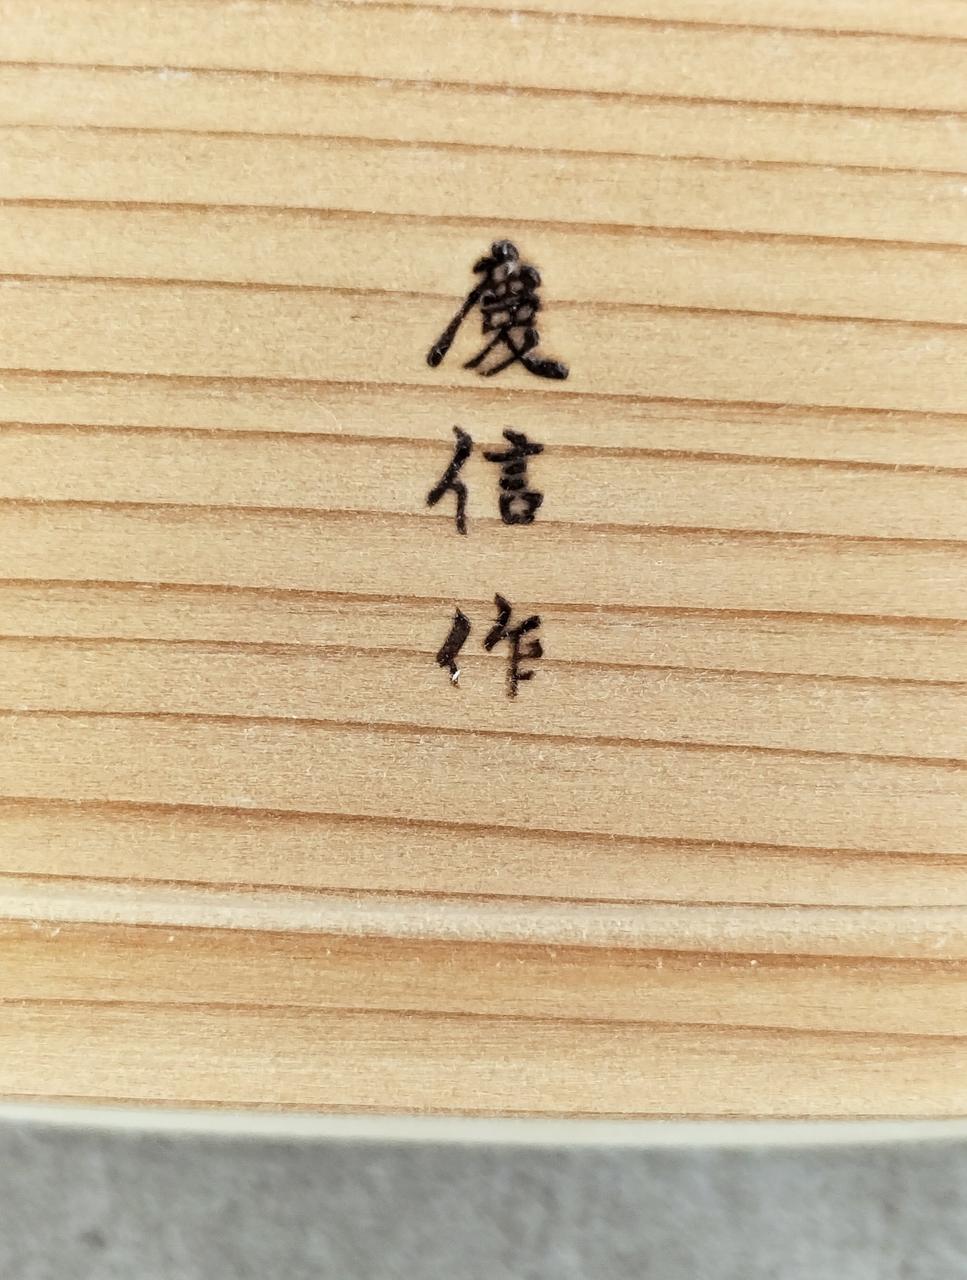 慶信作